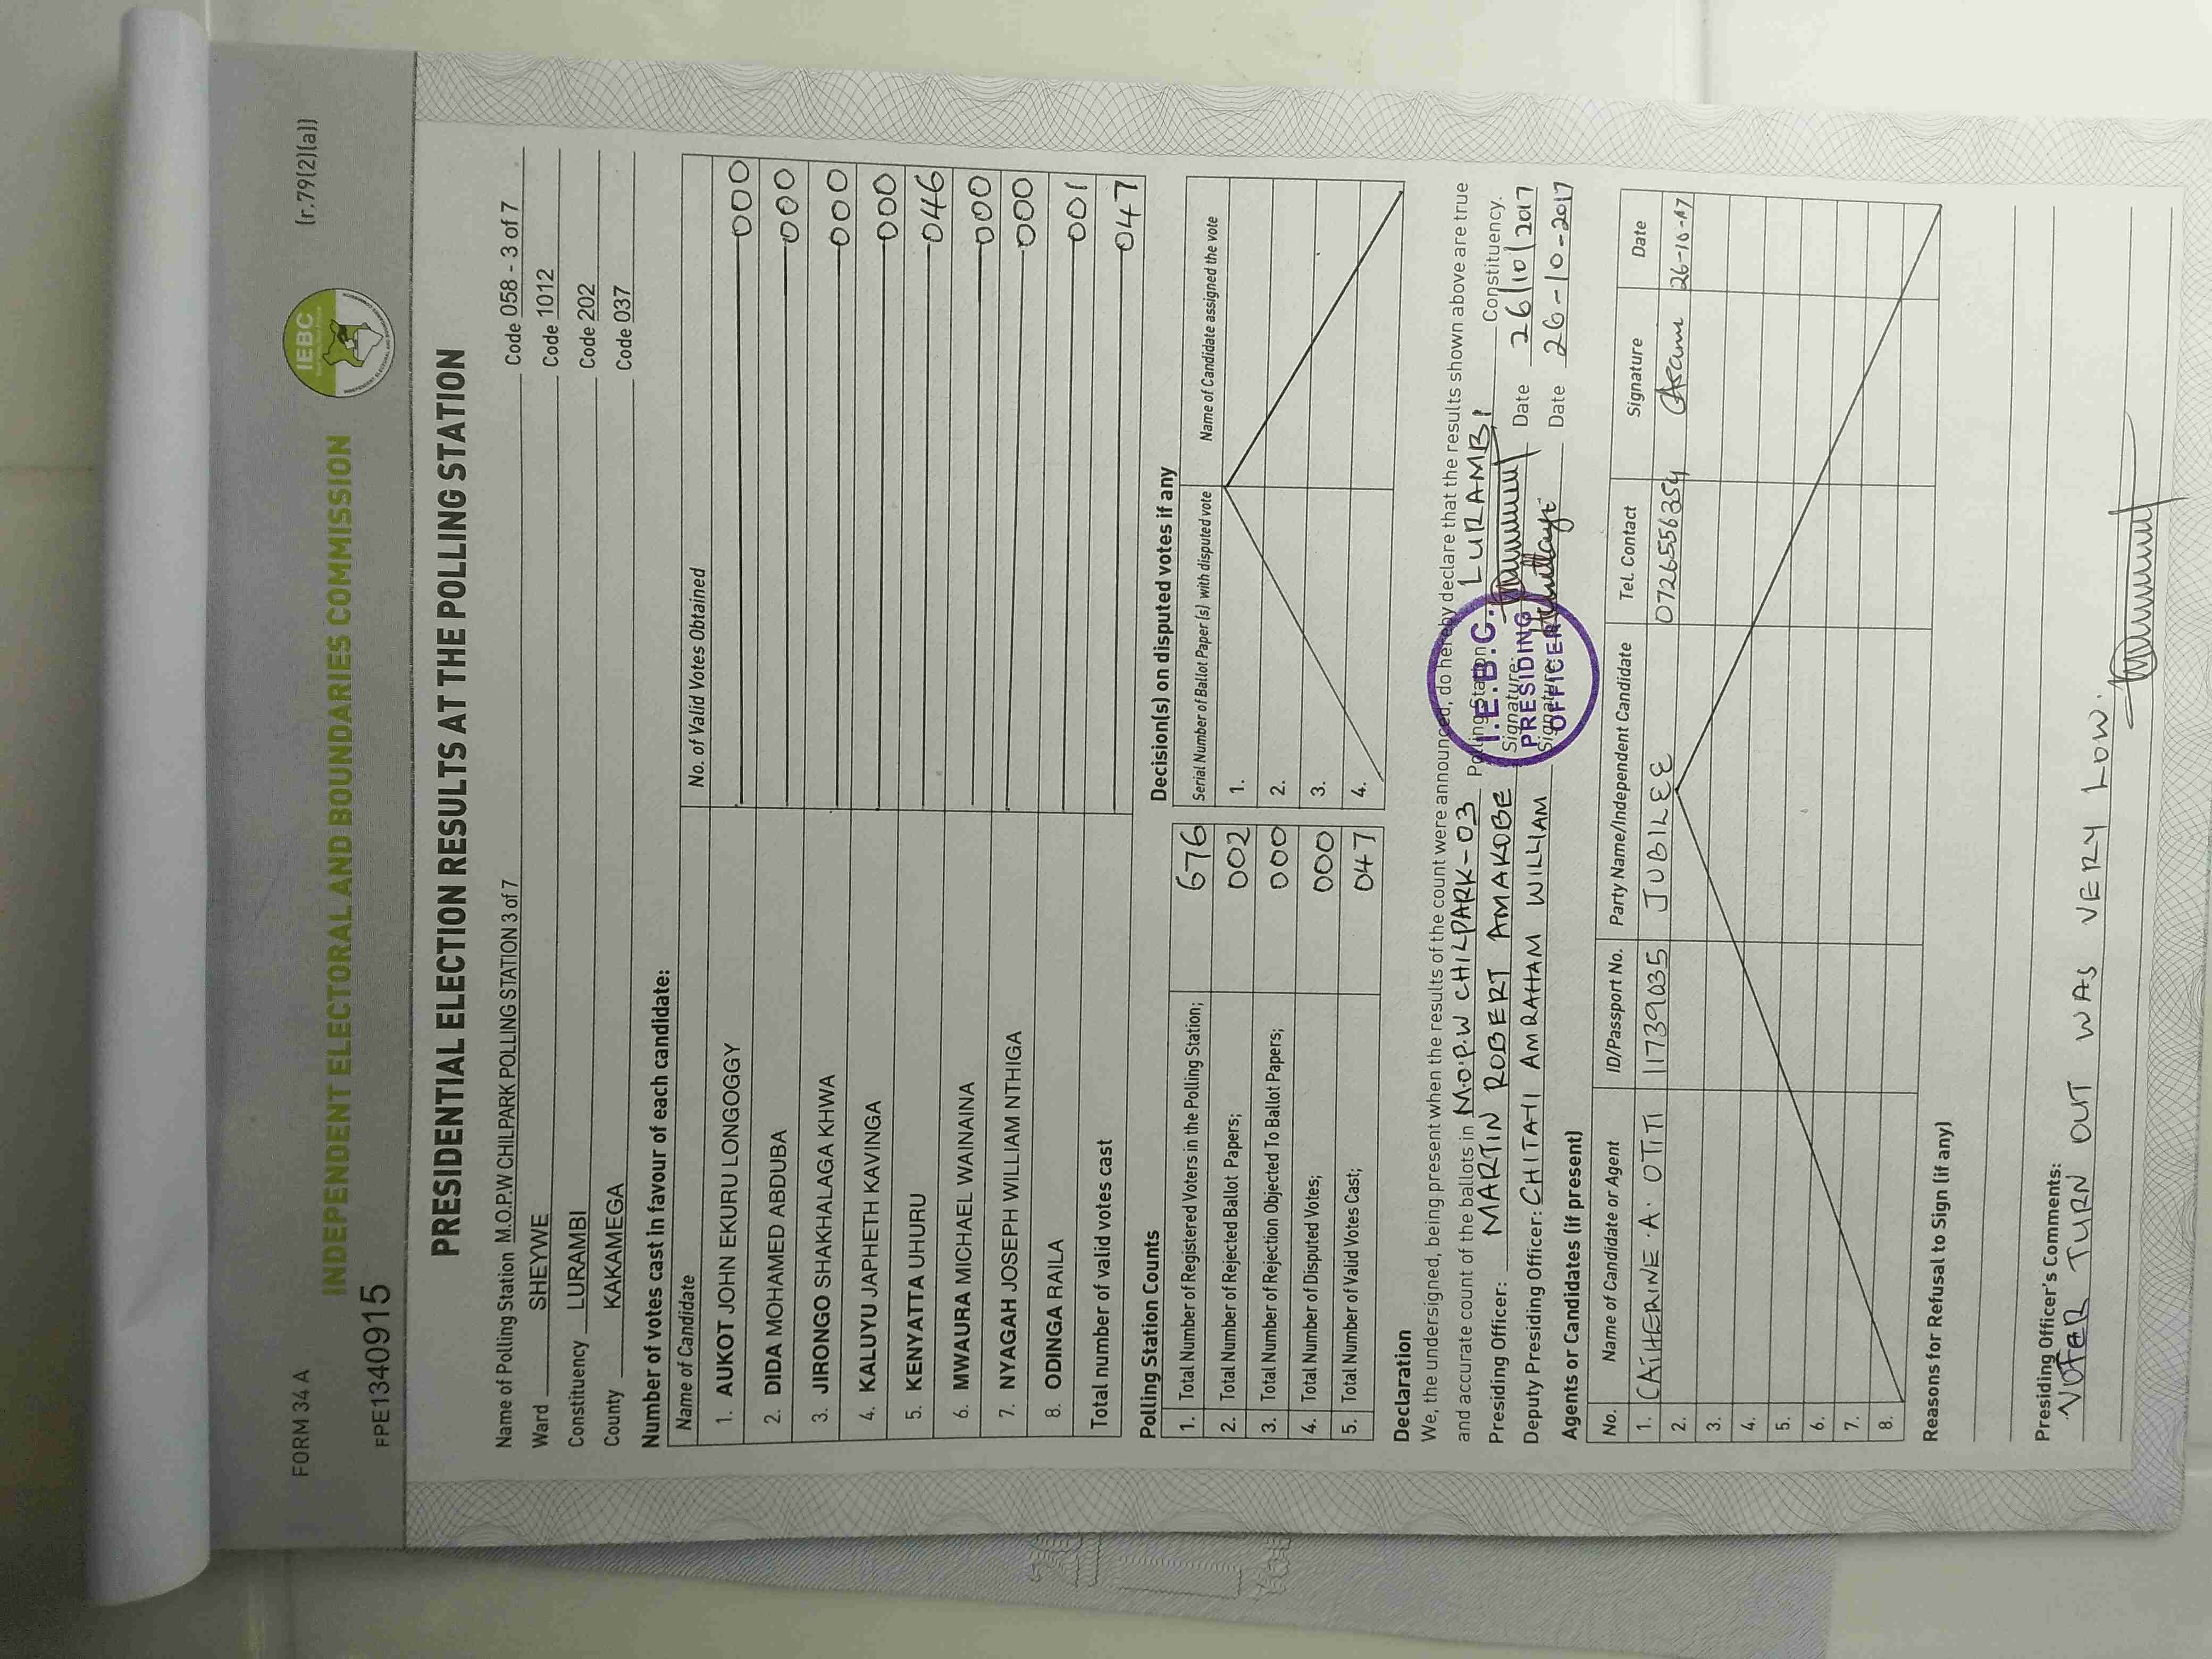 FORM 34 A (r.79(2)(a))
IEBC
INDEPENDENT ELECTORAL AND BOUNDARIES COMMISSION
FPE1340915
PRESIDENTIAL ELECTION RESULTS AT THE POLLING STATION
Name of Polling Station M.O.P.W CHILPARK POLLING STATION 3 of 7 Code 058 - 3 of 7
Ward SHEYWE Code 1012
Constituency LURAMBI Code 202
County KAKAMEGA Code 037
Number of votes cast in favour of each candidate:
Name of Candidate No. of Valid Votes Obtained
1. AUKOT JOHN EKURU LONGOGGY 000
2. DIDA MOHAMED ABDUBA 000
3. JIRONGO SHAKHALAGA KHWA 000
4. KALUYU JAPHETH KAVINGA 000
5. KENYATTA UHURU 046
6. MWAURA MICHAEL WAINAINA 000
7. NYAGAH JOSEPH WILLIAM NTHIGA 000
8. ODINGA RAILA 001
Total number of valid votes cast 047
Polling Station Counts
1. Total Number of Registered Voters in the Polling Station; 676
2. Total Number of Rejected Ballot Papers; 002
3. Total Number of Rejection Objected To Ballot Papers; 000
4. Total Number of Disputed Votes; 000
5. Total Number of Valid Votes Cast; 047
Decision(s) on disputed votes if any
Serial Number of Ballot Paper (s) with disputed vote Name of Candidate assigned the vote
1.
2.
3.
4.
Declaration
We, the undersigned, being present when the results of the count were announced, do hereby declare that the results shown above are true
and accurate count of the ballots in M.O.P.W CHILPARK-03 Polling Station LURAMBI Constituency.
Presiding Officer: MARTIN ROBERT AMAKOBE Signature: Date 26/10/2017
Deputy Presiding Officer: CHITAII AMRAHAM WILLIAM Signature: Date 26-10-2017
I.E.B.C.
PRESIDING
OFFICER
Agents or Candidates (if present)
No. Name of Candidate or Agent ID/Passport No. Party Name/Independent Candidate Tel. Contact Signature Date
1. CATHERINE A. OTITI 11739035 JUBILEE 0726556354 26-10-17
2.
3.
4.
5.
6.
7.
8.
Reasons for Refusal to Sign (if any)
Presiding Officer's Comments:
VOTER TURN OUT WAS VERY LOW.